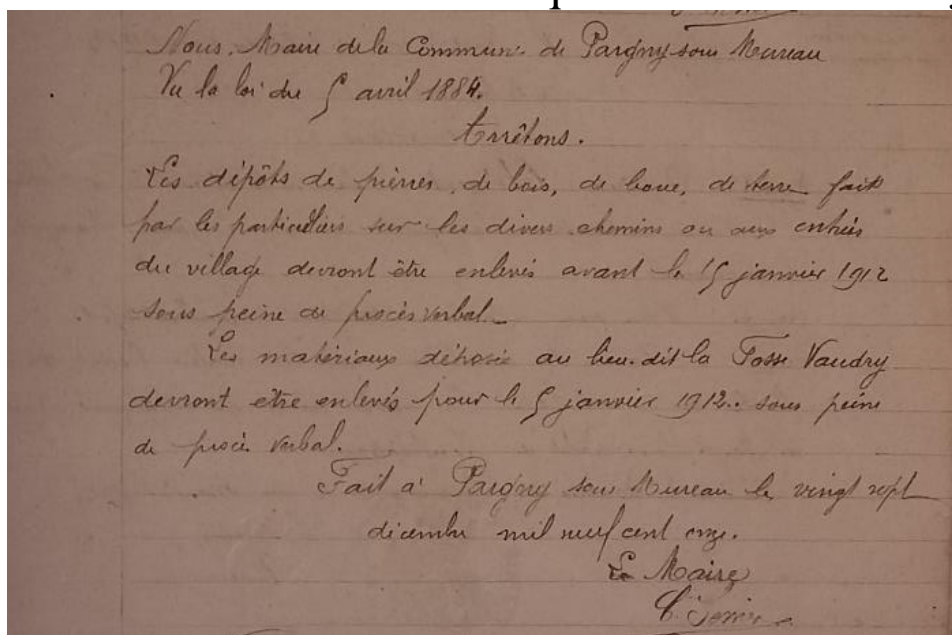 Nous, Maire de la Commune de Pargny sous Mureau
Vu la loi du 5 avril 1884.
Arrêtons.
Les dépôts de pierres, de bois, de boue, de terre fait
par les particuliers sur les divers chemins ou aux entrées
du village devront être enlevés avant le 15 janvier 1912
sous peine de procès verbal.
Les matériaux déposés au lieu-dit la Fosse Vaudry
devront être enlevés pour le 5 janvier 1912.. sous peine
de procès verbal.
Fait à Pargny sous Mureau le vingt sept
décembre mil neuf cent onze.
Le Maire